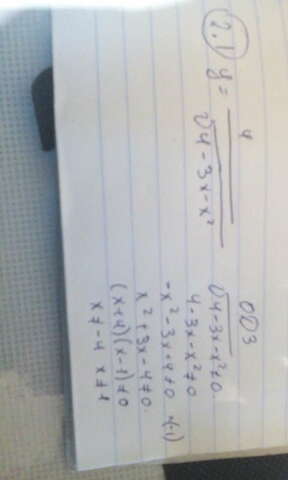 2.1 y = 4 / √4-3x-x²
ОДЗ
√4-3x-x² ≠ 0
4-3x-x² ≠ 0
-x²-3x+4 ≠ 0 ·(-1)
x²+3x-4 ≠ 0
(x+4)(x-1) ≠ 0
x ≠ -4 x ≠ 1